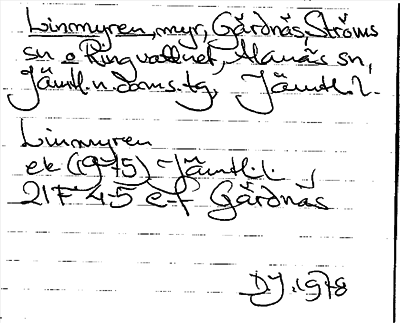 Linmyren, myr, Gärdnäs, Ströms
sn o Ringvattnet, Alanäs sn,
Jämtl. n. doms. tg, Jämtl. l.
Linmyren
ek (1975) Jämtl. l.
21F 4-5 e-f Gärdnäs
DJ. 1978